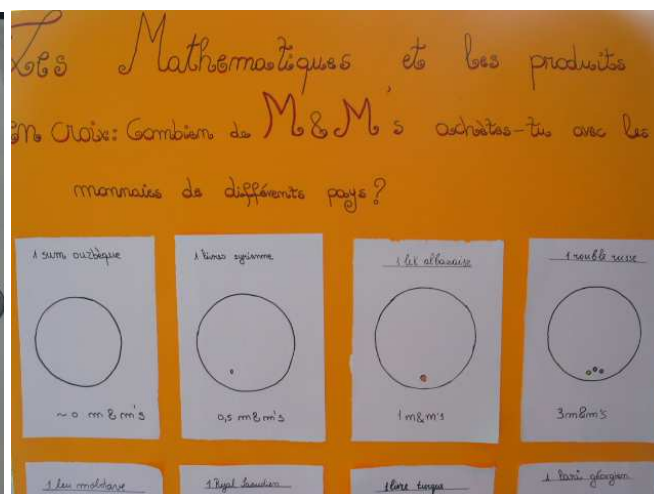 Les Mathématiques et les produits
En Croix: Combien de M&M's achètes-tu avec les
monnaies de différents pays?
1 sum ouzbèque
~0 m&m's
1 livres syrienne
0,5 m&m's
1 lek albanaise
1 m&m's
1 rouble russe
3 m&m's
1 leu moldave
1 Ryal Saoudien
1 livre turque
1 Lari géorgien